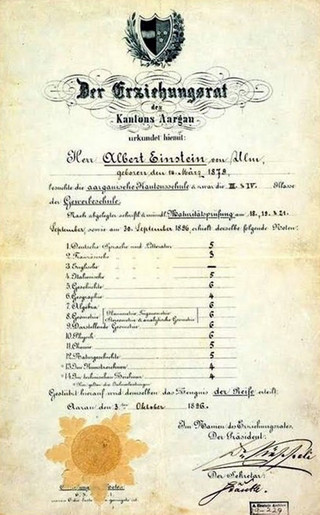 Der Erziehungsrat
des
Kantons Aargau
urkundet hiemit:
Herr Albert Einstein von Ulm,
geboren den 14. März 1879,
besuchte die aargauische Kantonsschule & zwar die III. & IV. Klasse
der Gewerbeschule.
Nach abgelegter schriftl. & mündl. Maturitätsprüfung am 18., 19. & 21.
September, sowie am 30. September 1896, erhielt derselbe folgende Noten:
1. Deutsche Sprache und Litteratur 5
2. Französische 3
3. Englische —
4. Italienische 5
5. Geschichte 6
6. Geographie 4
7. Algebra 6
8. Geometrie 6
9. Darstellende Geometrie 6
10. Physik 6
11. Chemie 5
12. Naturgeschichte 5
*13. Im Kunstzeichnen 4
*14. Im technischen Zeichnen 4
Gestützt hierauf wird demselben das Zeugnis der Reife erteilt.
Aarau den 3ten Oktober 1896.
Im Namen des Erziehungsrates,
Der Präsident:
Der Sekretär: